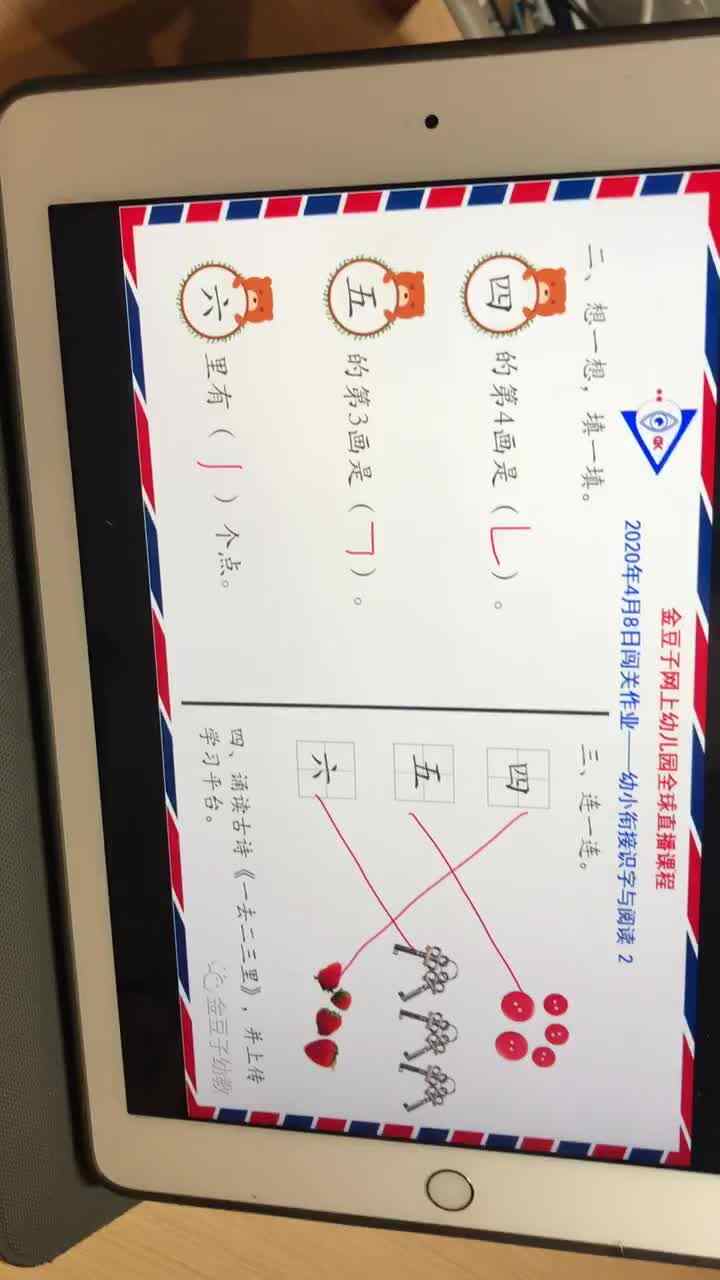 金豆子网上幼儿园全球直播课程
2020年4月8日闯关作业——幼小衔接识字与阅读 2
QK
二、想一想，填一填。
四 的第4画是（乚）。
五 的第3画是（𠃍）。
六 里有（亅）个点。
三、连一连。
四
五
六
四、诵读古诗《一去二三里》，并上传
学习平台。
金豆子幼教